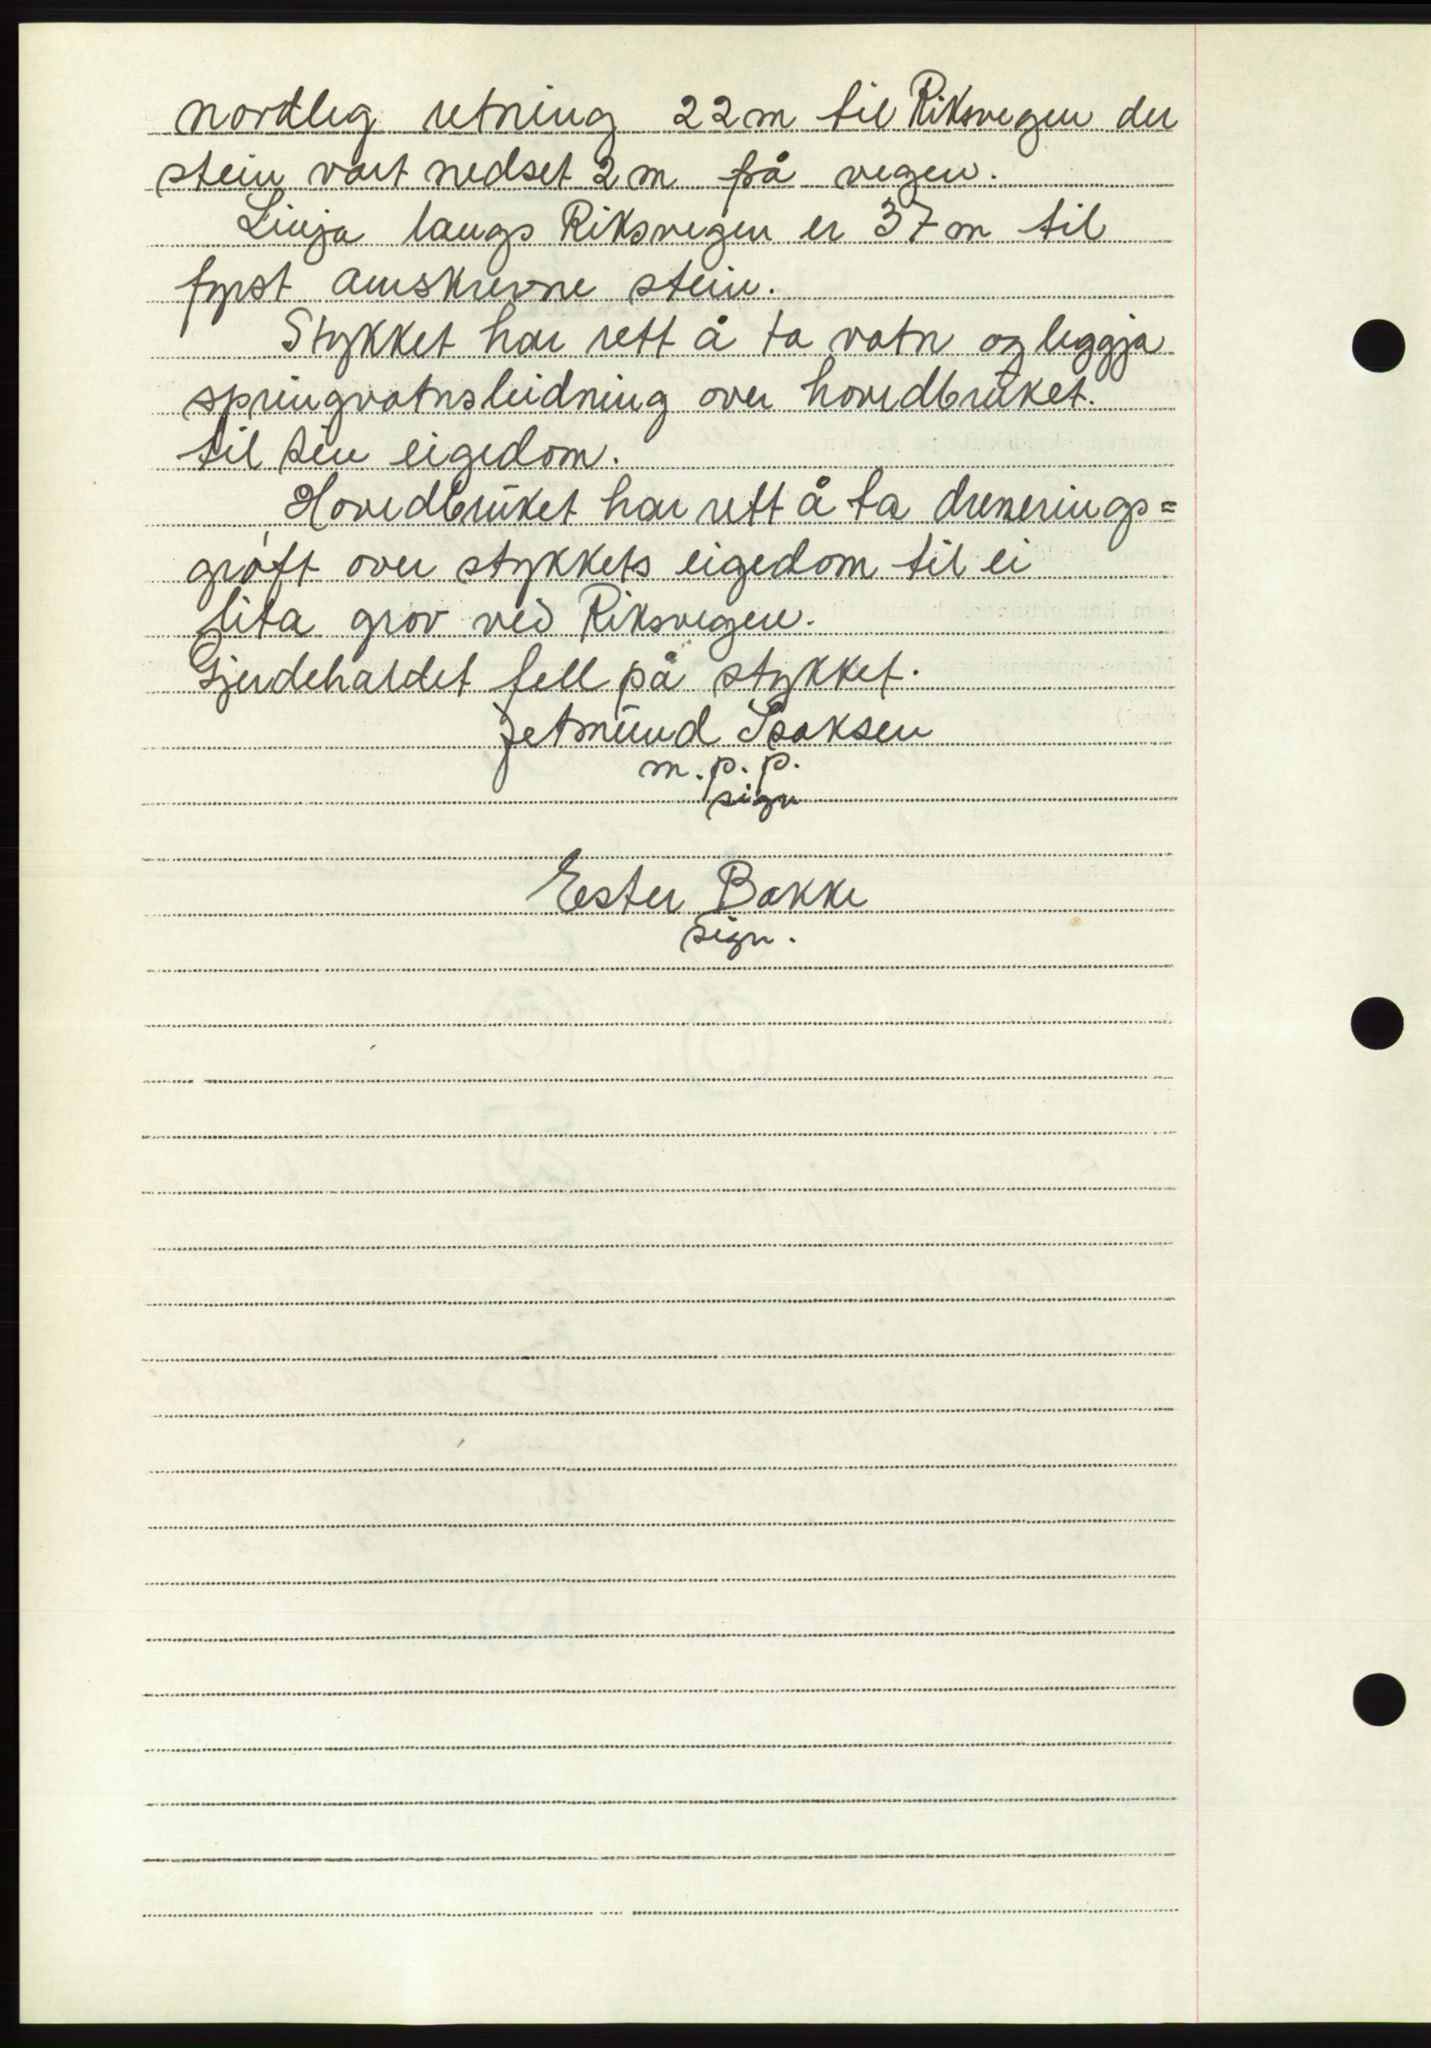 nordleg retning 22 m til Riksvegen der
stein vart nedset 2 m frå vegen.
Linja langs Riksvegen er 37 m til
fyrst omskrevne stein.
Stykket har rett å ta vatn og leggja
springvatnsleidning over hovedbruket.
til sin eigedom.
Hovedbruket har rett å ta drenerings=
grøft over stykkets eigedom til ei
lita grov ved Riksvegen.
Gjerdehaldet fell på stykket.
Jetmund Isaksen
m. p. p.
sign
Ester Bakke
sign.